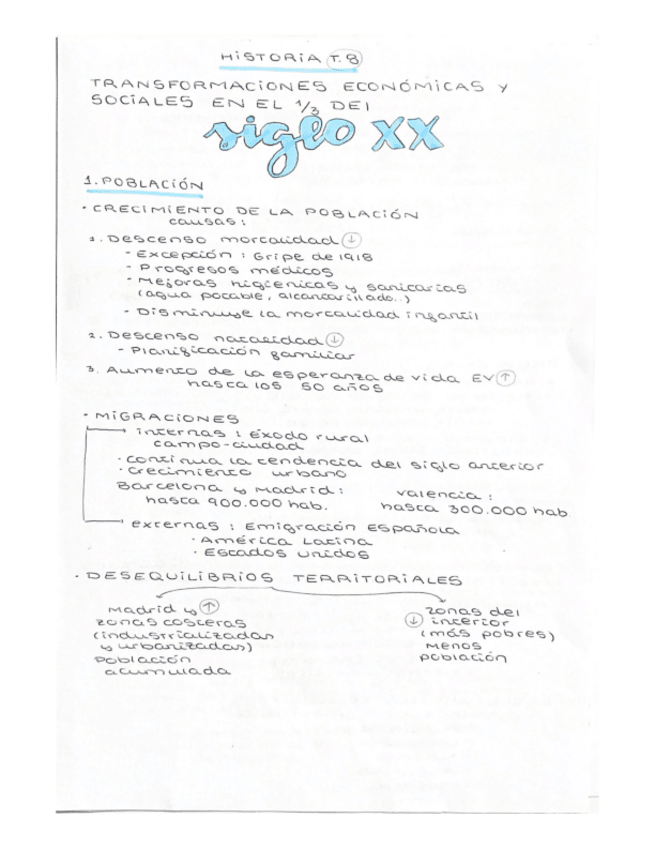 HISTORIA T.8
TRANSFORMACIONES ECONÓMICAS Y
SOCIALES EN EL 1/3 DEL
siglo XX
1. POBLACIÓN
· CRECIMIENTO DE LA POBLACIÓN
causas:
1. Descenso mortalidad ↓
- Excepción: Gripe de 1918
- Progresos médicos
- Mejoras higienicas y sanitarias
(agua potable, alcantarillado..)
- Disminuye la mortalidad infantil
2. Descenso natalidad ↓
- Planificación familiar
3. Aumento de la esperanza de vida EV ↑
hasta los 50 años
· MIGRACIONES
internas: éxodo rural
campo-ciudad
· continua la tendencia del siglo anterior
· crecimiento urbano
Barcelona y Madrid: valencia:
hasta 900.000 hab. hasta 300.000 hab
externas: Emigración Española
· América Latina
· Estados Unidos
· DESEQUILIBRIOS TERRITORIALES
Madrid y ↑
zonas costeras
(industrializadas
y urbanizadas)
población
acumulada
zonas del
↓ interior
(más pobres)
menos
población